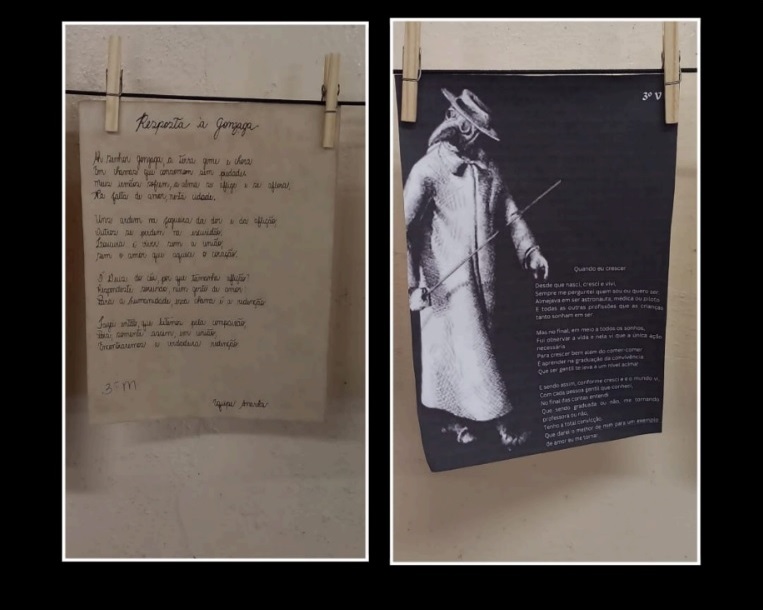 Resposta à Gonzaga
Ah senhor Gonzaga, a terra geme e chora
Em chamas que consomem sem piedade
Mais sofrem, a alma se aflige e se
Na falta de amor, nesta cidade.
Uns ardem na fogueira da dor e da aflição
Outros se perdem na escuridão,
Loucura é viver sem a união,
sem o amor que aquece o coração.
Ó Deus do céu, por que tamanha aflição?
num grito de amor
Para a humanidade, cuja chama é a redenção
Faça então, que lutemos pela compaixão,
Pois somente assim, em união,
Encontraremos a verdadeira redenção
3º M
3º V
Quando eu crescer
Desde que nasci, cresci e vivi,
Sempre me perguntei quem sou ou quero ser
Almejava em ser astronauta, médica ou piloto
E todas as outras profissões que as crianças
tanto sonham em ser.
Mas no final, em meio a todos os sonhos,
Fui observar a vida e nela vi que a única ação
necessária
Para crescer bem além do comer-comer
É aprender na graduação da convivência
Que ser gentil te leva a um nível acima!
E sendo assim, conforme cresci e o mundo vi,
Com cada pessoa gentil que convivi,
No final das contas entendi
Que, sendo graduada ou não, me tornando
professora ou não,
Tenho a total convicção
Que darei o melhor de mim para um exemplo
de amor eu me tornar.